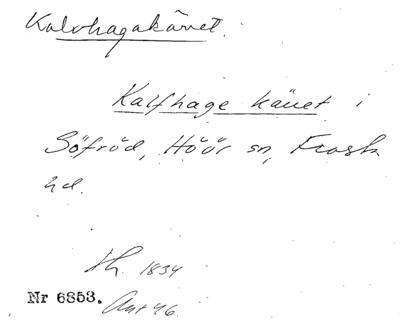 Kalvhagakäret.
Kalfhage käret i
Söfröd, Höör sn, Frosta
hd.
Sk. 1834
Nr 6853.
Avt 46.